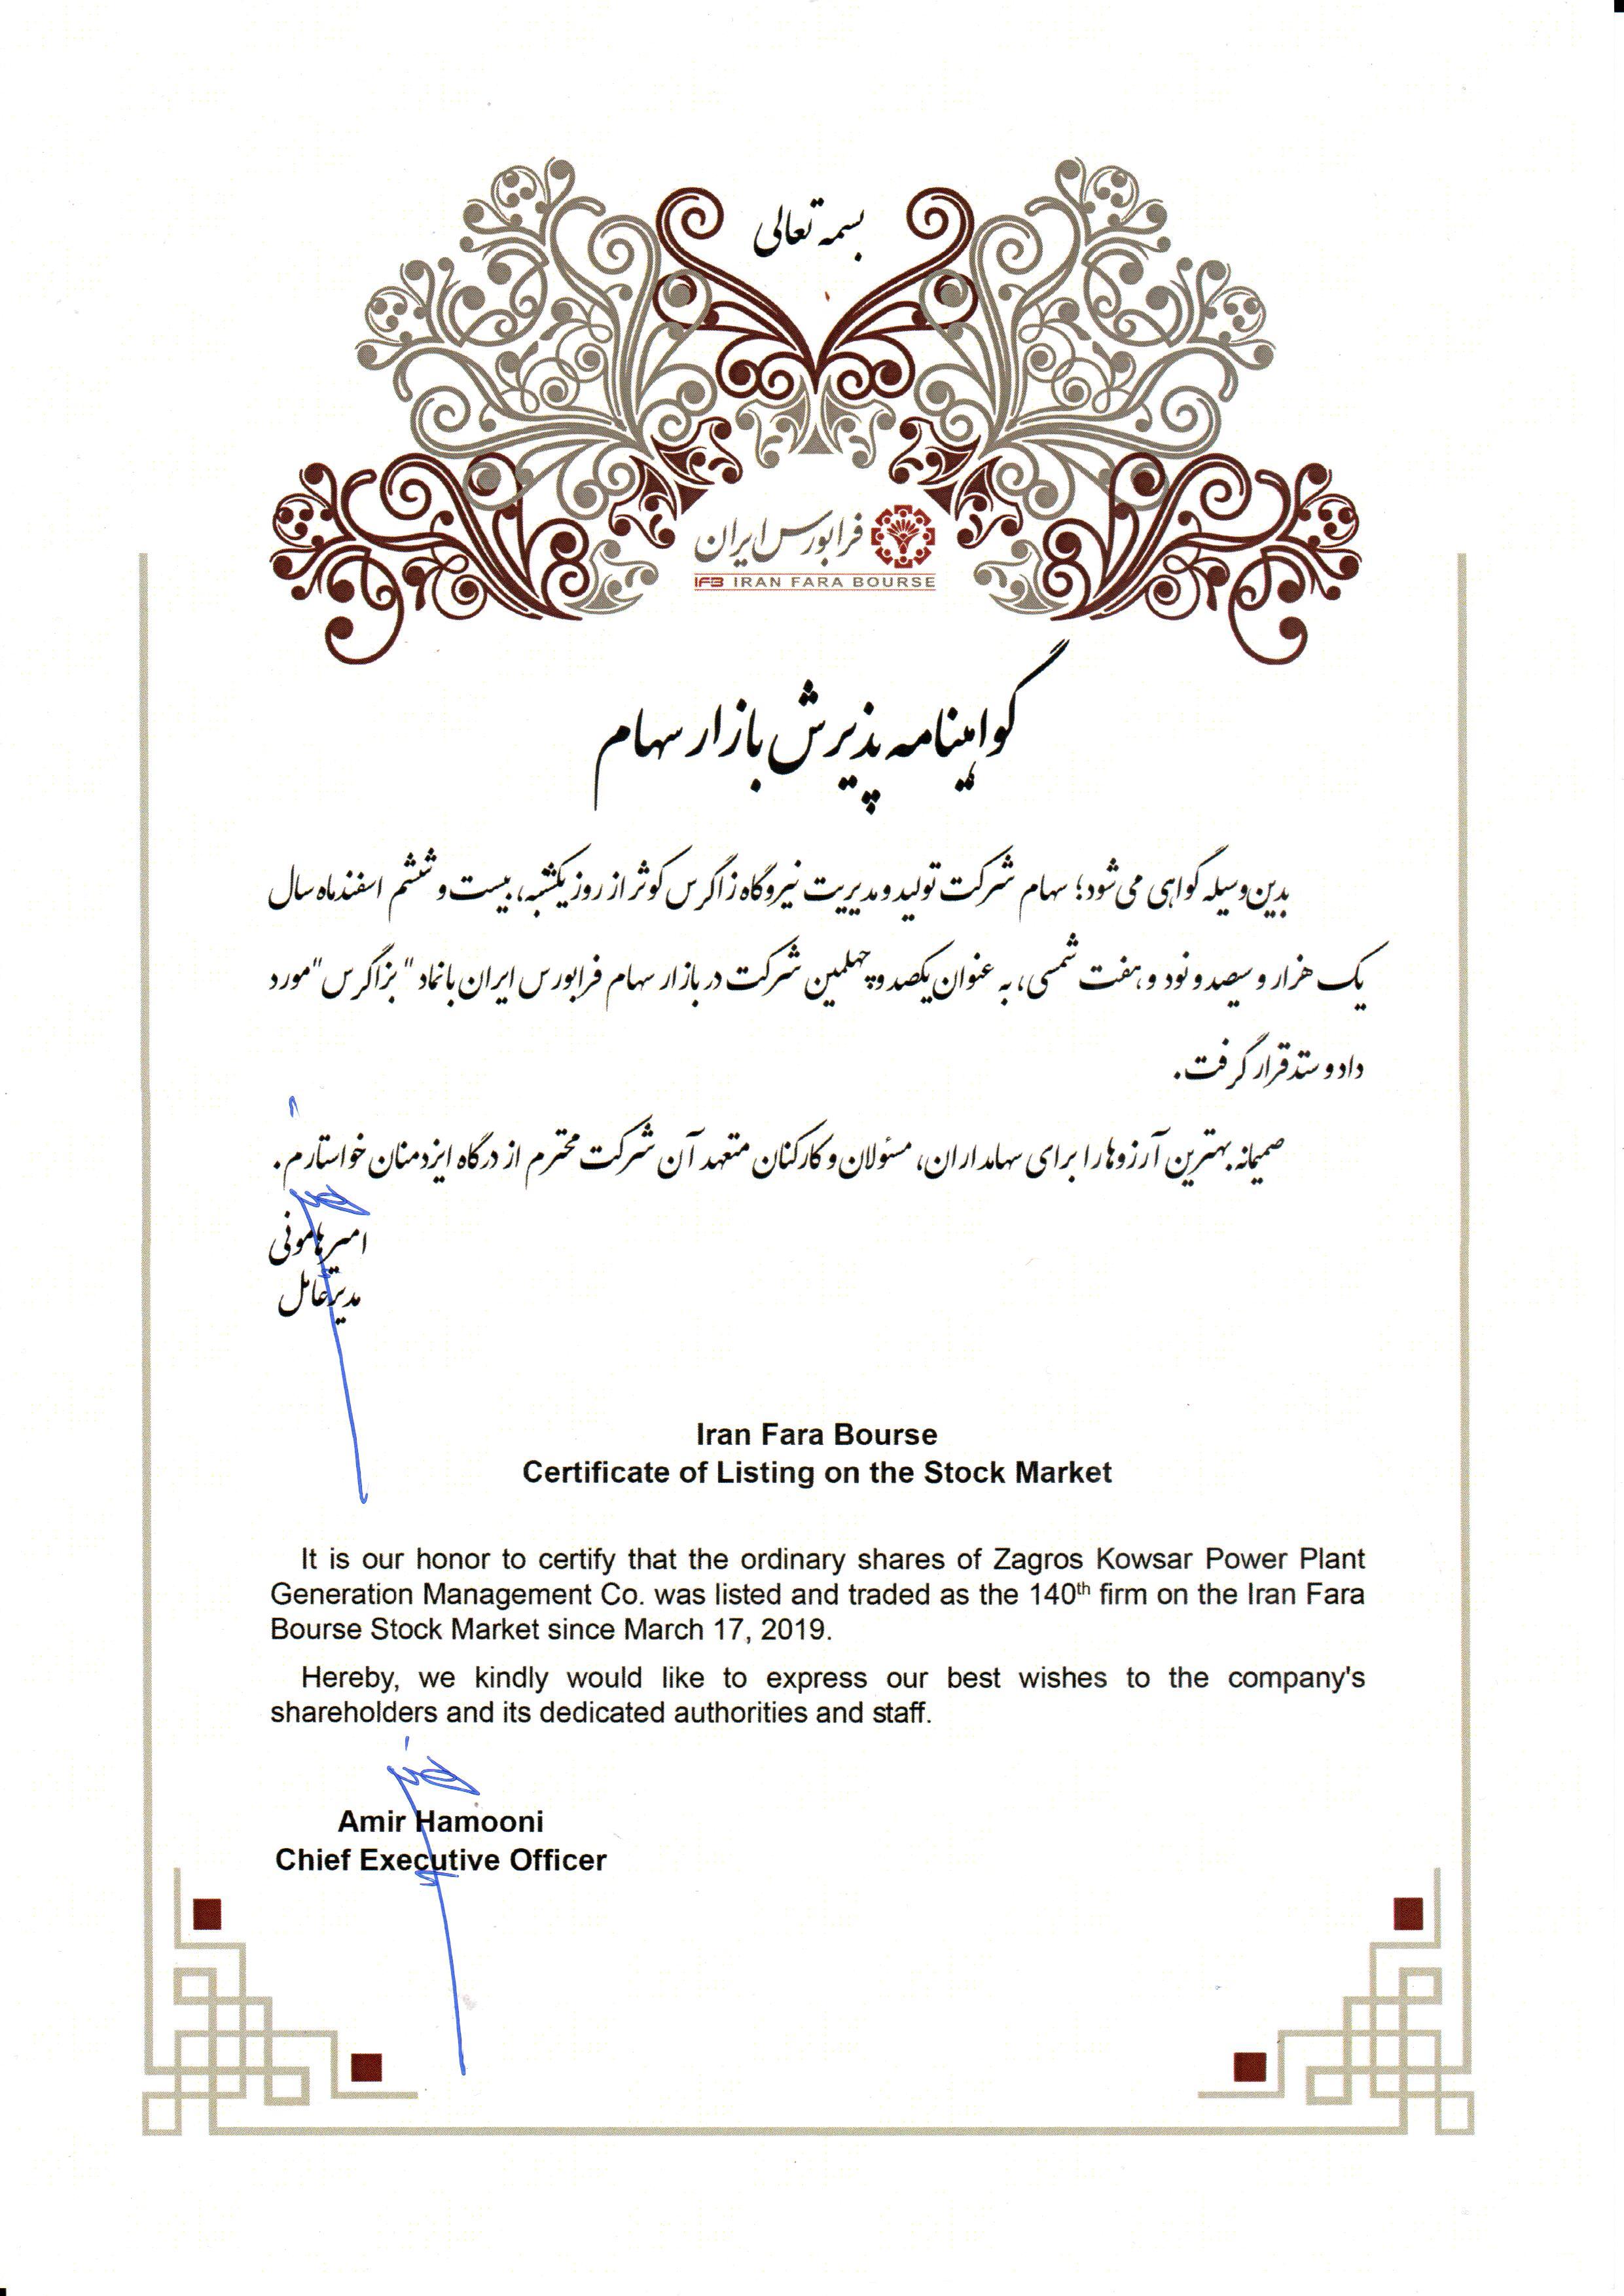 بسمه تعالی
فرابورس ایران
IFB IRAN FARA BOURSE
گواهینامه پذیرش بازار سهام
بدین‌وسیله گواهی می‌شود؛ سهام شرکت تولید و مدیریت نیروگاه زاگرس کوثر از روز یکشنبه، بیست و ششم اسفندماه سال
یک هزار و سیصد و نود و هفت شمسی، به عنوان یکصد و چهلمین شرکت در بازار سهام فرابورس ایران با نماد "بزاگرس" مورد
داد و ستد قرار گرفت.
صمیمانه بهترین آرزوها را برای سهامداران، مسئولان و کارکنان متعهد آن شرکت محترم از درگاه ایزد منان خواستارم.
امیر هامونی
مدیرعامل
Iran Fara Bourse
Certificate of Listing on the Stock Market
It is our honor to certify that the ordinary shares of Zagros Kowsar Power Plant
Generation Management Co. was listed and traded as the 140th firm on the Iran Fara
Bourse Stock Market since March 17, 2019.
Hereby, we kindly would like to express our best wishes to the company's
shareholders and its dedicated authorities and staff.
Amir Hamooni
Chief Executive Officer